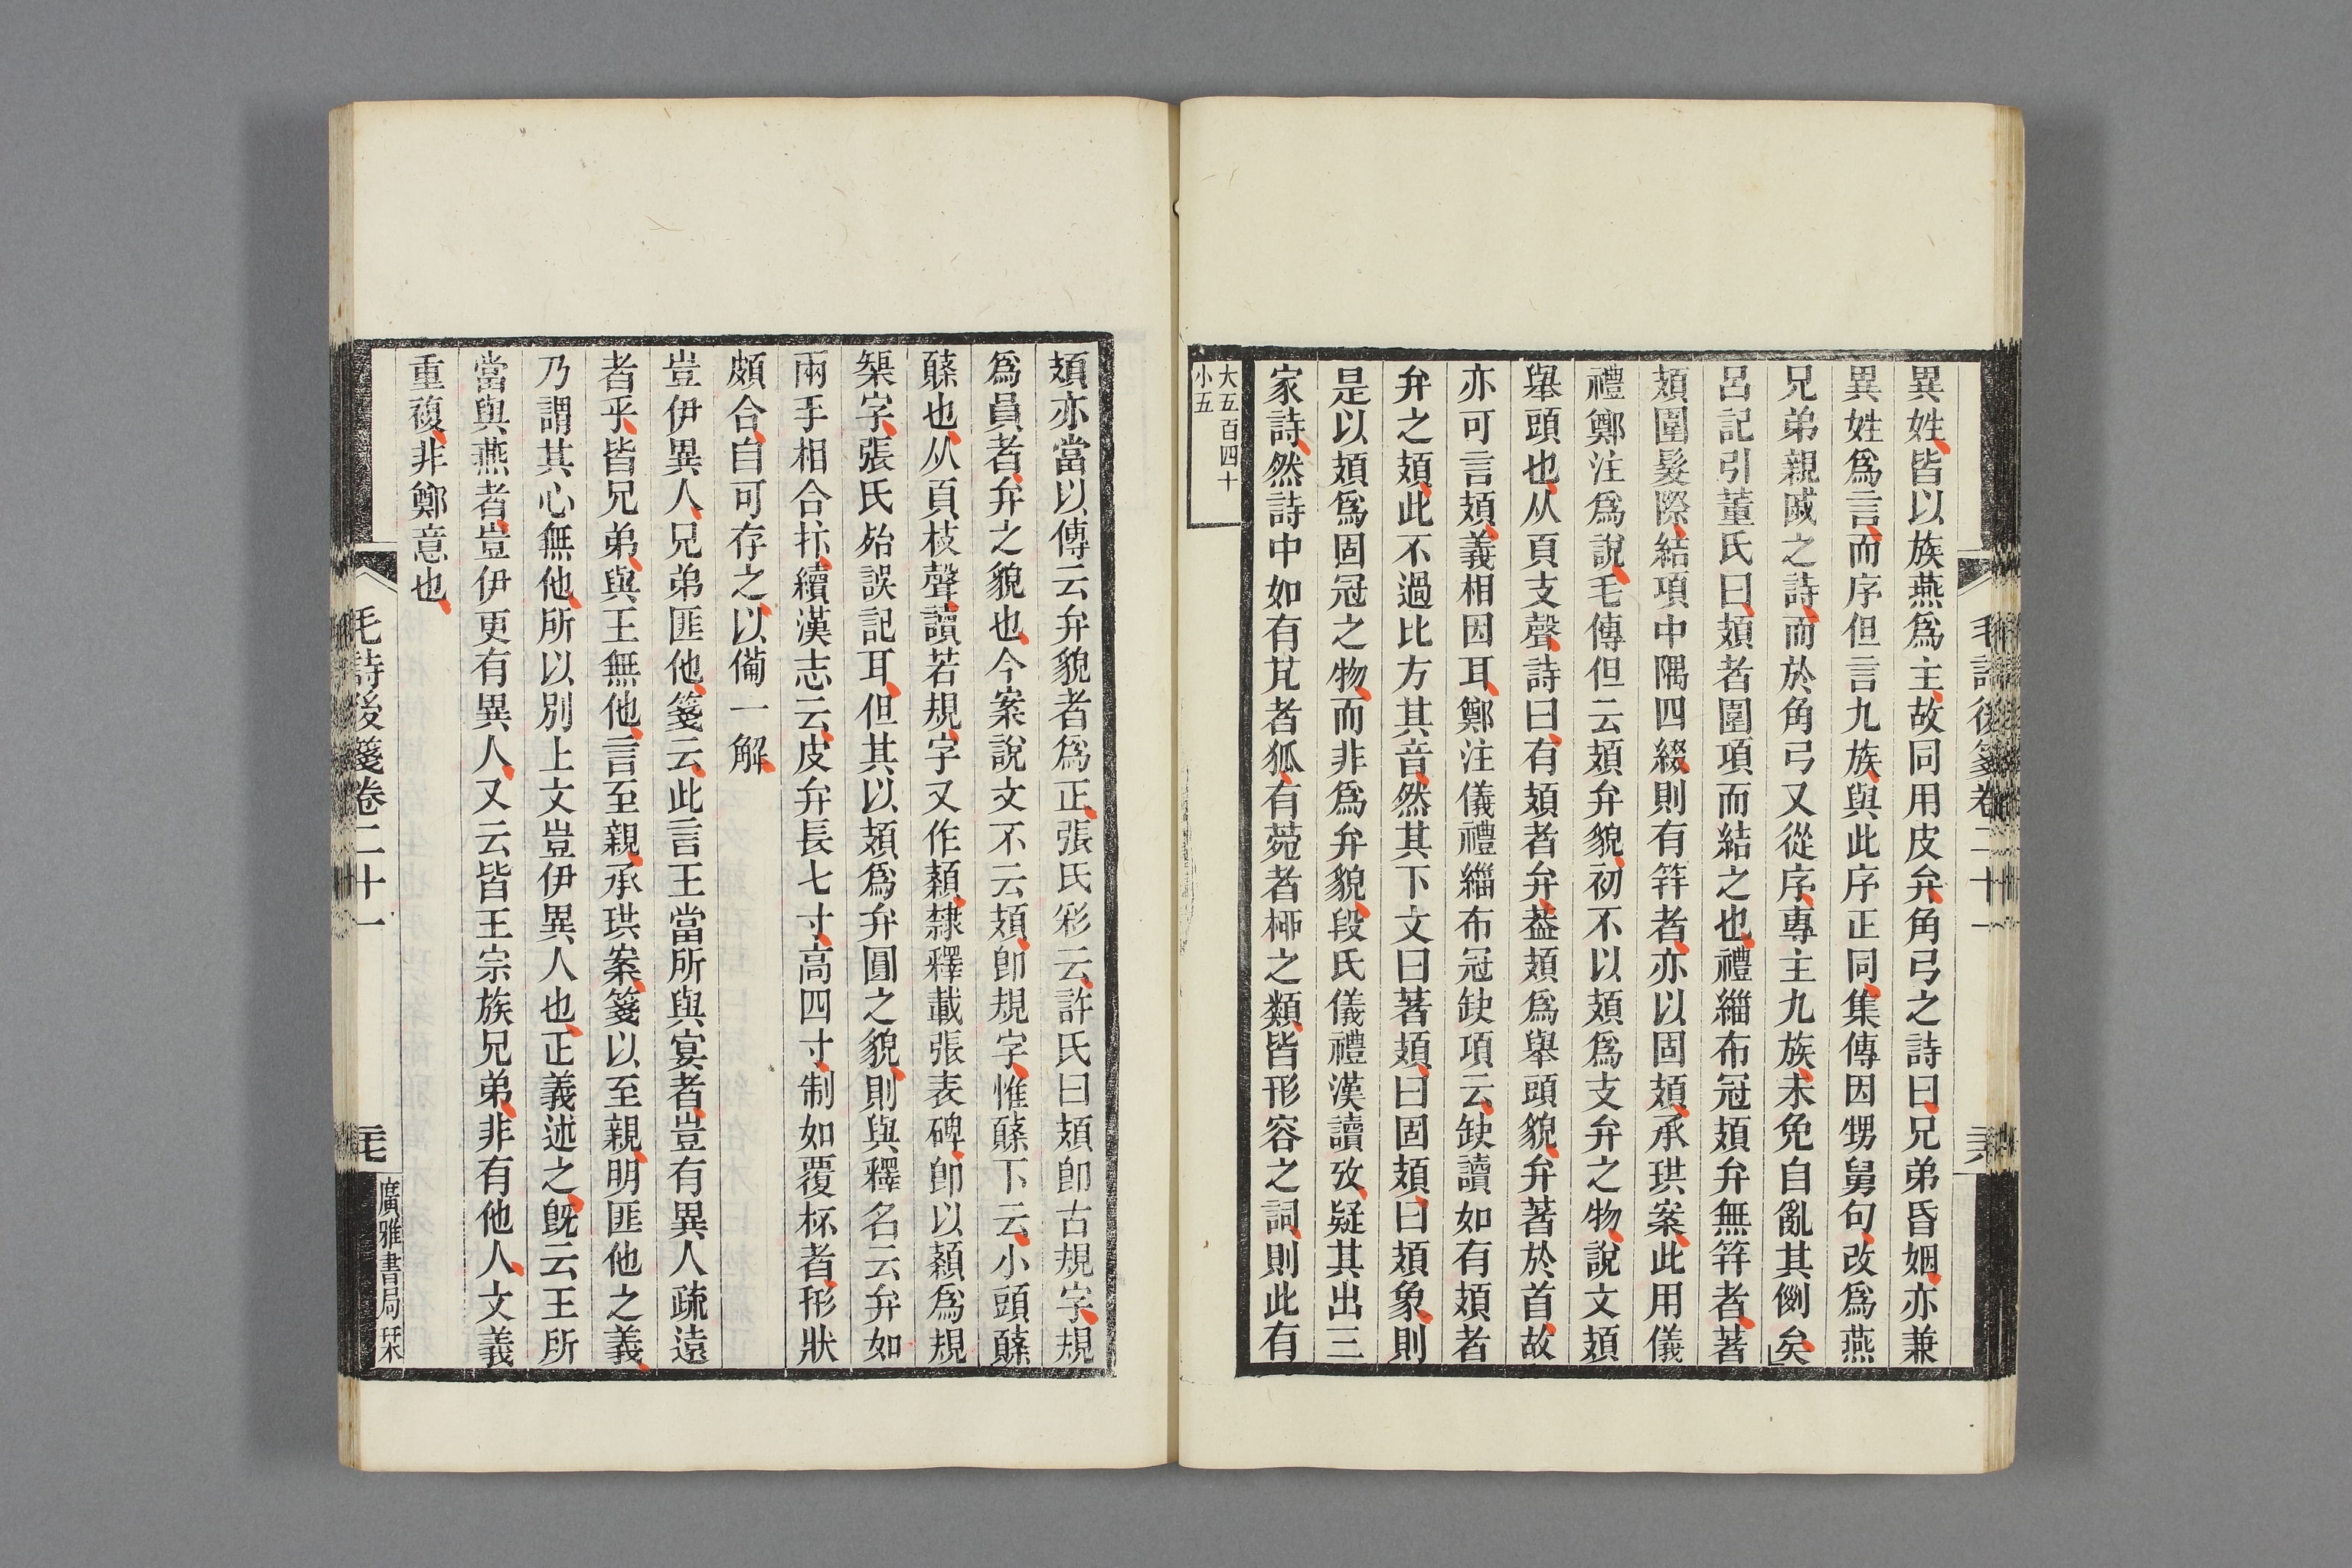 異姓皆以族燕爲主故同用皮弁角弓之詩曰兄弟昏姻亦兼
異姓爲言而序但言九族與此序正同集傳因甥舅句改爲燕
兄弟親戚之詩而於角弓又從序專主九族未免自亂其例矣
呂記引董氏曰頍者圍項而結之也禮緇布冠頍弁無筓者著
頍圍髮際結項中隅四綴則有筓者亦以固頍承珙案此用儀
禮鄭注爲說毛傳但云頍弁貌初不以頍爲支弁之物說文頍
舉頭也从頁支聲詩曰有頍者弁葢頍爲舉頭貌弁著於首故
亦可言頍義相因耳鄭注儀禮緇布冠缺項云缺讀如有頍者
弁之頍此不過比方其音然其下文曰著頍曰固頍曰頍象則
是以頍爲固冠之物而非爲弁貌段氏儀禮漢讀攷疑其出三
家詩然詩中如有芃者狐有菀者桺之類皆形容之詞則此有
大五百四十
小五
毛詩後箋卷二十一
頍亦當以傳云弁貌者爲正張氏彩云許氏曰頍卽古規字規
爲員者弁之貌也今案說文不云頍卽規字惟䫌下云小頭䫌
䫌也从頁枝聲讀若規字又作頛隸釋載張表碑卽以頛爲規
榘字張氏殆誤記耳但其以頍爲弁圓之貌則與釋名云弁如
兩手相合抃續漢志云皮弁長七寸高四寸制如覆杯者形狀
頗合自可存之以僃一解
豈伊異人兄弟匪他箋云此言王當所與宴者豈有異人疏遠
者乎皆兄弟與王無他言至親承珙案箋以至親明匪他之義
乃謂其心無他所以別上文豈伊異人也正義述之旣云王所
當與燕者豈伊更有異人又云皆王宗族兄弟非有他人文義
重複非鄭意也
毛詩後箋卷二十一
廣雅書局栞